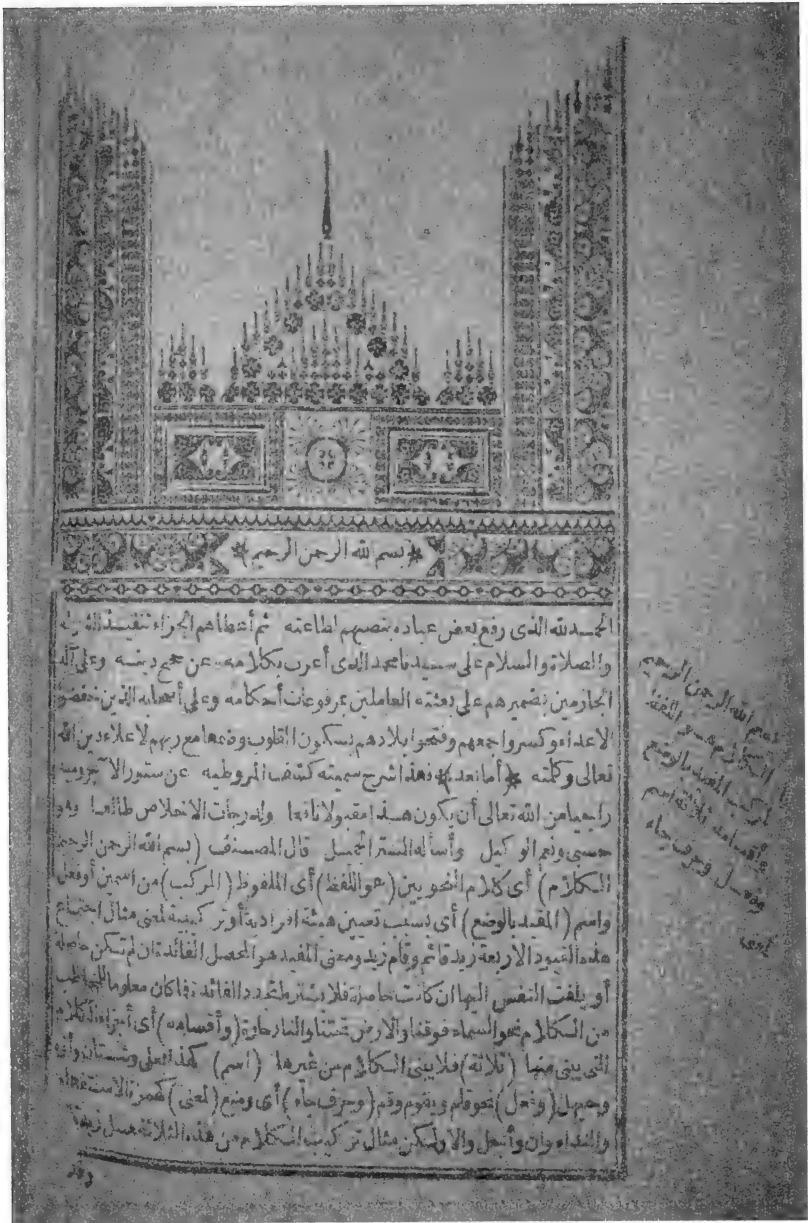 ﴿بسم الله الرحمن الرحيم﴾
الحمد لله الذى رفع بعض عباده بنصبهم لطاعته ثم أعطاهم الجزاء
والصلاة والسلام على سيدنا محمد الذى أعرب بكلامه عن صحيح دينه وعلى آله
الجازمين بضميرهم على العاملين بمرفوعات أحكامه وعلى أصحابه الذين خفضوا
الاعداء وكسروا جمعهم وفتحوا بلادهم بسكون القلوب مع ربهم لاعلاء دين الله
تعالى وكلمته ﴿أما بعد﴾ فهذا شرح سميته كشف المروطيه عن ستور الآجرومية
راجيا من الله تعالى أن يكون هذا مقبولا نافعا ولدرجات الاخلاص طالعا وهو
حسبى ونعم الوكيل وأسأله الستر الجميل قال المصنف (بسم الله الرحمن الرحيم
الكلام) أى كلام النحويين (هو اللفظ) أى الملفوظ (المركب) من اسمين أو فعل
واسم (المفيد بالوضع) أى بسبب تعيين هيئة افرادية أو تركيبية لمعنى مثال اجتماع
هذه القيود الاربعة زيد قائم وقام زيد ومعنى المفيد هو المحصل الفائدة ان لم تكن حاصلة
أو يلفت النفس اليها ان كانت حاصلة فلا يشترط تجدد الفائدة فما كان معلوما للمخاطب
من الكلام نحو السماء فوقنا والارض تحتنا والنار حارة (وأقسامه) أى أجزاء الكلام
التى يبنى منها (ثلاثة) فلا يبنى الكلام من غيرها (اسم) كهذا
(وفعل) نحو قام ويقوم وقم (وحرف جاء) أى وضع (لمعنى) كهمزة الاستفهام
والنداء وان مثال تركيب الكلام من هذه الثلاثة
بسم الله الرحمن الرحيم
الكلام هو اللفظ
المركب المفيد بالوضع
وأقسامه ثلاثة اسم
وفعل وحرف جاء